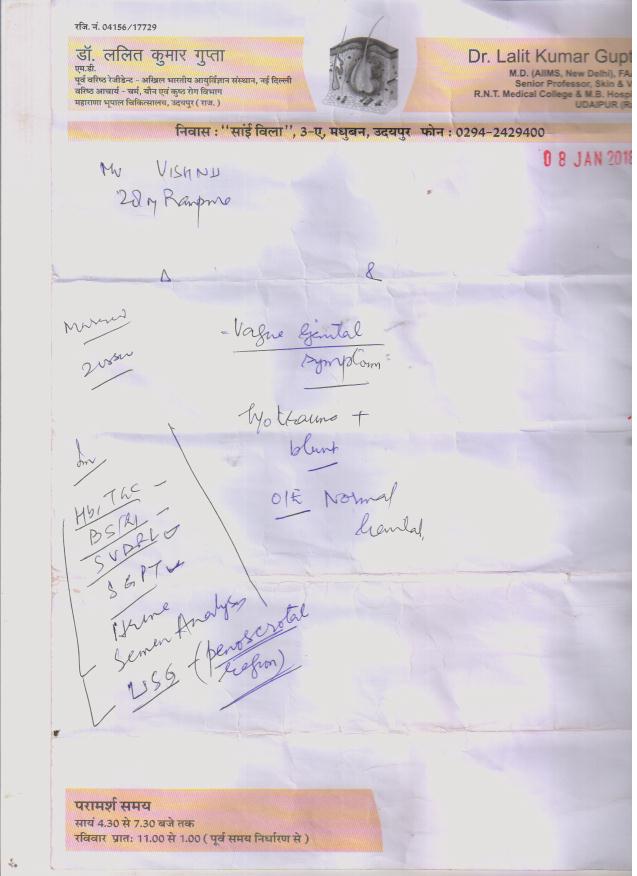 रजि. नं. 04156/17729
डॉ. ललित कुमार गुप्ता
एम.डी.
पूर्व वरिष्ठ रेजीडेन्ट - अखिल भारतीय आयुर्विज्ञान संस्थान, नई दिल्ली
वरिष्ठ आचार्य - चर्म, यौन एवं कुष्ठ रोग विभाग
महाराणा भूपाल चिकित्सालय, उदयपुर ( राज. )
Dr. Lalit Kumar Gupt
M.D. (AIIMS, New Delhi), FA
Senior Professor, Skin & V
R.N.T. Medical College & M.B. Hospi
UDAIPUR (R
निवास : "सांई विला", 3-ए, मधुबन, उदयपुर फोन : 0294-2429400
08 JAN 2018
Mr VISHNU
28y
Δ
- Vague Genital
symptom
H/o trauma +
blunt
O/E Normal
Genital
Inv
Hb, TLC -
BSR -
SVDRL
SGPT
Urine
Semen Analysis
USG - (penoscrotal
region)
परामर्श समय
सायं 4.30 से 7.30 बजे तक
रविवार प्रात: 11.00 से 1.00 ( पूर्व समय निर्धारण से )